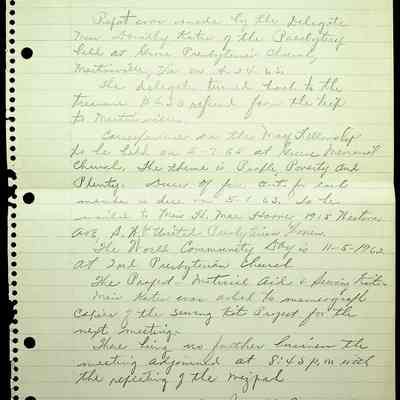 Report was made by the Delegate
Miss Dorothy Kates of the Presbytery
held at Grove Presbyterian Church,
Martinsville, Va on 4-24-62
The delegate turned back to the
treasurer $6.50 refund for the trip
to Martinsville.
on the May Fellowship
to be held on 5-7-62 at Greene Memorial
Church. The theme is People, Poverty and
Plenty. Dues of for each
member is due on 5-1-62. To be
mailed to Miss H. Mae Hoover 1915 Westover
Ave, S.W. United Presbyterian Women.
The World Community Day is 11-5-1962
at 2nd Presbyterian Church
The Project - Material Aid & Sewing Kits.
Miss Kates was asked to mimeograph
copies of the Sewing Kit Project for the
next meeting.
There being no further business the
meeting adjourned at 8:45 p.m with
the repeating of the Mizpah